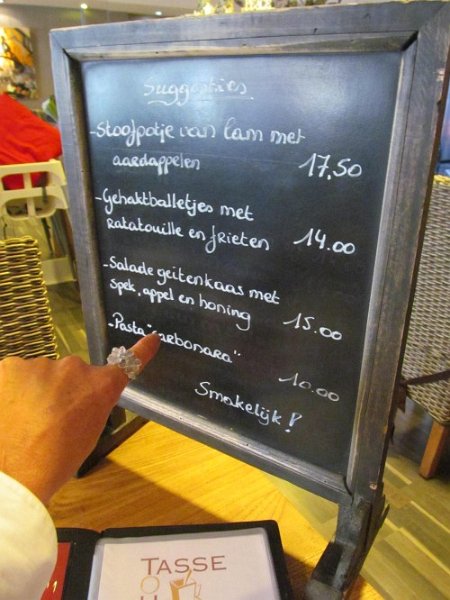 Suggesties
-Stoofpotje van lam met
aardappelen 17,50
-Gehaktballetjes met
ratatouille en frieten 14.00
-Salade geitenkaas met
spek, appel en honing 15.00
-Pasta "carbonara" 10.00
Smakelijk!
TASSE
O